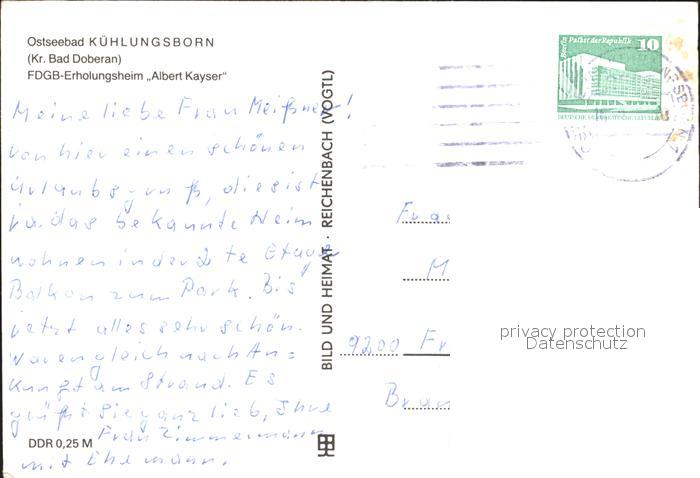 Ostseebad KÜHLUNGSBORN
(Kr. Bad Doberan)
FDGB-Erholungsheim „Albert Kayser“
Meine liebe Frau Meißner!
von hier einen schönen
Urlaubsgruß, dies ist
ja das bekannte Heim
wohnen in der 2 te Etage
Balkon zum Park. Bis
jetzt alles sehr schön.
Waren gleich nach An=
kunft am Strand. Es
grüßt Sie ganz lieb, Ihre
Frau Zimmermann
mit Ehemann.
DDR 0,25 M
BILD UND HEIMAT · REICHENBACH (VOGTL)
Berlin Palast der Republik 10
DEUTSCHE DEMOKRATISCHE REPUBLIK
Frau
M
9200 Fr
Bran
privacy protection
Datenschutz